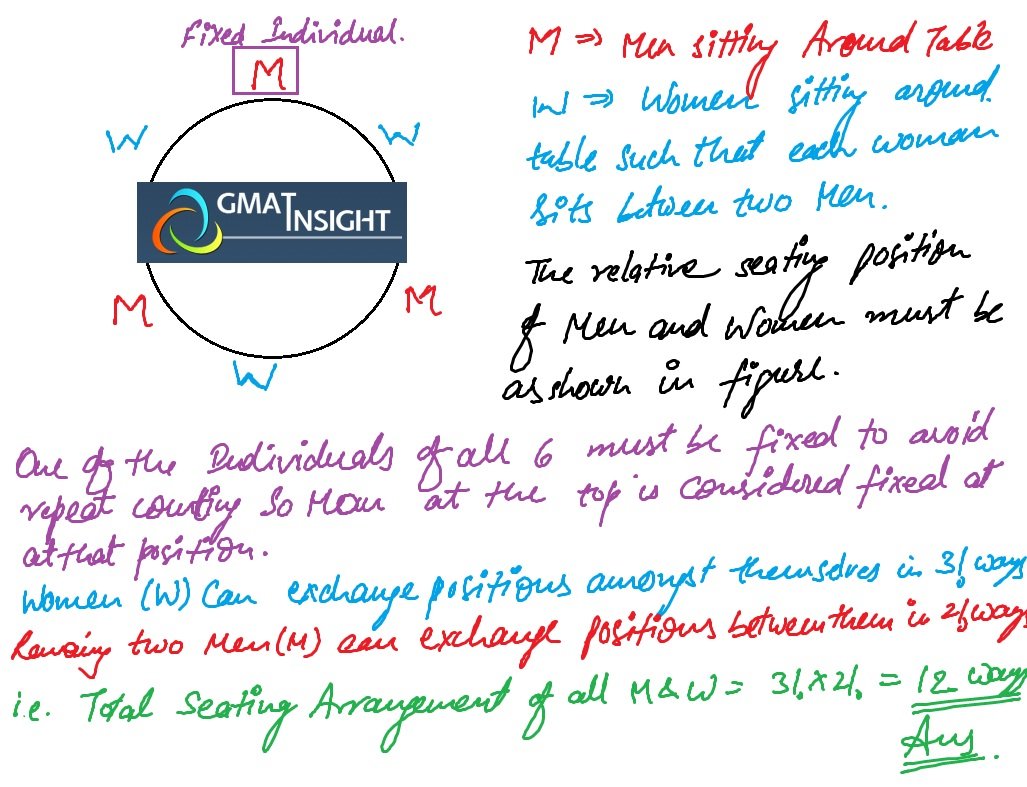 Fixed Individual.
M
W W
GMAT INSIGHT
M M
W
M ⇒ Men sitting Around Table
W ⇒ Women sitting around
table such that each woman
sits between two Men.
The relative seating position
of Men and Women must be
as shown in figure.
One of the Individuals of all 6 must be fixed to avoid
repeat counting So Man at the top is considered fixed at
at that position.
Women (W) Can exchange positions amongst themselves in 3! ways
two Men (M) can exchange positions between them in 2! ways
i.e. Total Seating Arrangement of all M & W = 3! × 2! = 12 ways
Ans.